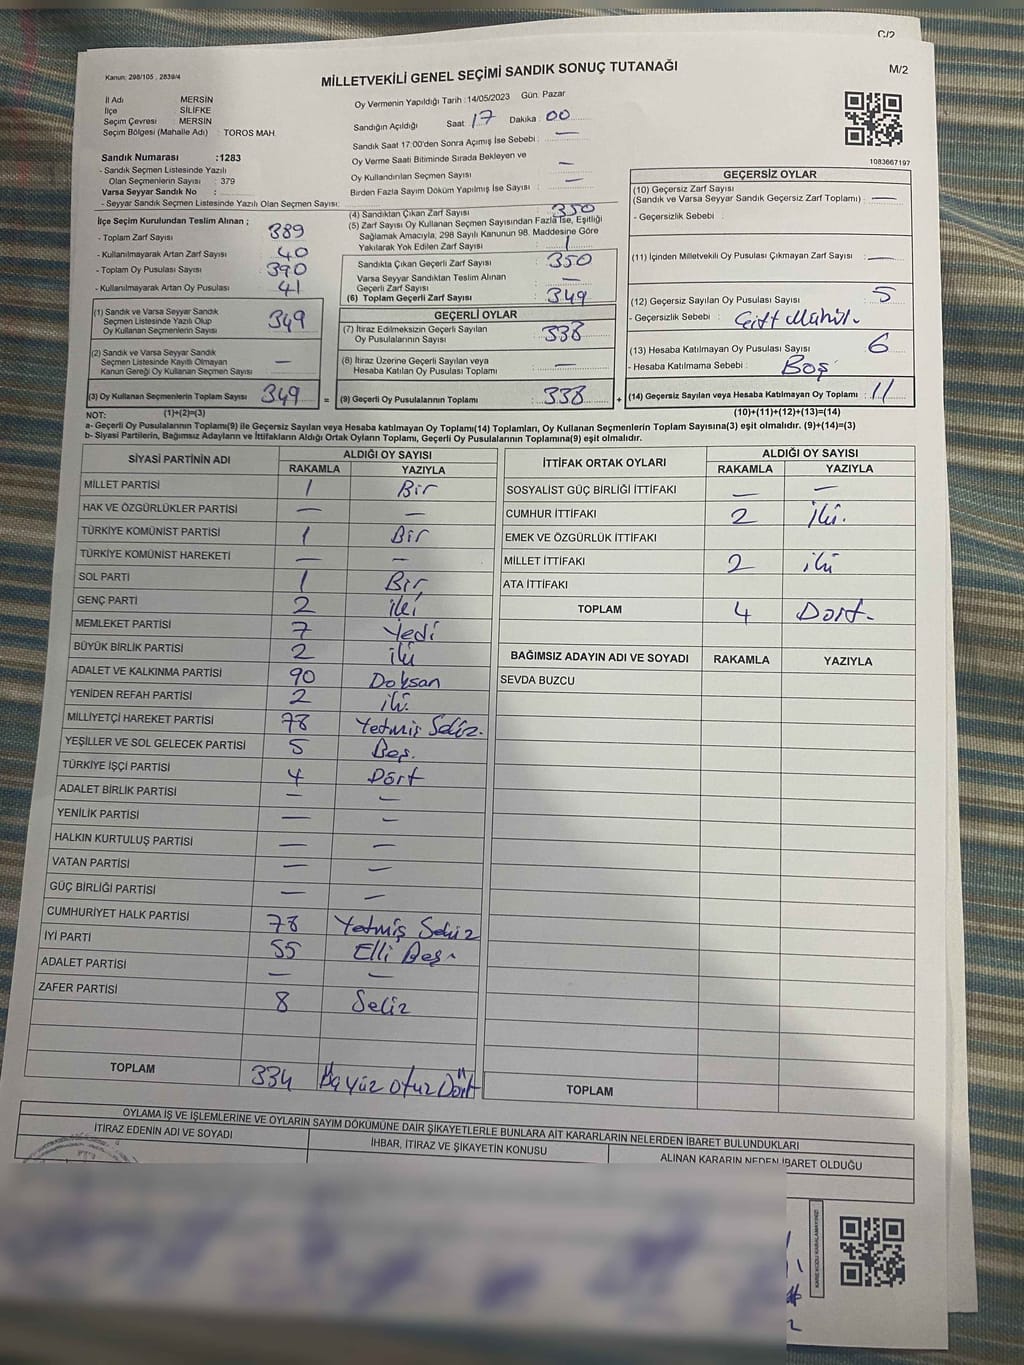 C/2
Kanun: 298/105 , 2839/4
MİLLETVEKİLİ GENEL SEÇİMİ SANDIK SONUÇ TUTANAĞI
M/2
İl Adı MERSİN
İlçe SİLİFKE
Seçim Çevresi : MERSİN
Seçim Bölgesi (Mahalle Adı) TOROS MAH.
Sandık Numarası :1283
- Sandık Seçmen Listesinde Yazılı
Olan Seçmenlerin Sayısı : 379
Varsa Seyyar Sandık No :
- Seyyar Sandık Seçmen Listesinde Yazılı Olan Seçmen Sayısı:
Oy Vermenin Yapıldığı Tarih :14/05/2023 Gün: Pazar
Sandığın Açıldığı Saat : 17 Dakika : 00
Sandık Saat 17:00'den Sonra Açımış İse Sebebi : —
Oy Verme Saati Bitiminde Sırada Bekleyen ve
Oy Kullandırılan Seçmen Sayısı : —
Birden Fazla Sayım Döküm Yapılmış İse Sayısı : —
1083667197
İlçe Seçim Kurulundan Teslim Alınan ;
- Toplam Zarf Sayısı : 389
- Kullanılmayarak Artan Zarf Sayısı : 40
- Toplam Oy Pusulası Sayısı : 390
- Kullanılmayarak Artan Oy Pusulası : 41
(1) Sandık ve Varsa Seyyar Sandık
Seçmen Listesinde Yazılı Olup
Oy Kullanan Seçmenlerin Sayısı : 349
(2) Sandık ve Varsa Seyyar Sandık
Seçmen Listesinde Kayıtlı Olmayan
Kanun Gereği Oy Kullanan Seçmen Sayısı : —
(3) Oy Kullanan Seçmenlerin Toplam Sayısı : 349 =
(4) Sandıktan Çıkan Zarf Sayısı : 350
(5) Zarf Sayısı Oy Kullanan Seçmen Sayısından Fazla İse, Eşitliği
Sağlamak Amacıyla, 298 Sayılı Kanunun 98. Maddesine Göre
Yakılarak Yok Edilen Zarf Sayısı : 1
Sandıkta Çıkan Geçerli Zarf Sayısı : 350
Varsa Seyyar Sandıktan Teslim Alınan
Geçerli Zarf Sayısı :
(6) Toplam Geçerli Zarf Sayısı : 349
GEÇERLİ OYLAR
(7) İtiraz Edilmeksizin Geçerli Sayılan
Oy Pusulalarının Sayısı : 338
(8) İtiraz Üzerine Geçerli Sayılan veya
Hesaba Katılan Oy Pusulası Toplamı : —
(9) Geçerli Oy Pusulalarının Toplamı : 338 +
GEÇERSİZ OYLAR
(10) Geçersiz Zarf Sayısı
(Sandık ve Varsa Seyyar Sandık Geçersiz Zarf Toplamı) : —
- Geçersizlik Sebebi :
(11) İçinden Milletvekili Oy Pusulası Çıkmayan Zarf Sayısı : —
(12) Geçersiz Sayılan Oy Pusulası Sayısı : 5
- Geçersizlik Sebebi :
(13) Hesaba Katılmayan Oy Pusulası Sayısı : 6
- Hesaba Katılmama Sebebi : Boş
(14) Geçersiz Sayılan veya Hesaba Katılmayan Oy Toplamı : 11
NOT: (1)+(2)=(3) (10)+(11)+(12)+(13)=(14)
a- Geçerli Oy Pusulalarının Toplamı(9) ile Geçersiz Sayılan veya Hesaba katılmayan Oy Toplamı(14) Toplamları, Oy Kullanan Seçmenlerin Toplam Sayısına(3) eşit olmalıdır. (9)+(14)=(3)
b- Siyasi Partilerin, Bağımsız Adayların ve İttifakların Aldığı Ortak Oyların Toplamı, Geçerli Oy Pusulalarının Toplamına(9) eşit olmalıdır.
SİYASİ PARTİNİN ADI ALDIĞI OY SAYISI
RAKAMLA YAZIYLA
MİLLET PARTİSİ 1 Bir
HAK VE ÖZGÜRLÜKLER PARTİSİ — —
TÜRKİYE KOMÜNİST PARTİSİ 1 Bir
TÜRKİYE KOMÜNİST HAREKETİ — —
SOL PARTİ 1 Bir
GENÇ PARTİ 2 iki
MEMLEKET PARTİSİ 7 Yedi
BÜYÜK BİRLİK PARTİSİ 2 iki
ADALET VE KALKINMA PARTİSİ 90 Doksan
YENİDEN REFAH PARTİSİ 2 iki
MİLLİYETÇİ HAREKET PARTİSİ 78 Yetmiş Sekiz.
YEŞİLLER VE SOL GELECEK PARTİSİ 5 Beş.
TÜRKİYE İŞÇİ PARTİSİ 4 Dört
ADALET BİRLİK PARTİSİ — —
YENİLİK PARTİSİ — —
HALKIN KURTULUŞ PARTİSİ — —
VATAN PARTİSİ — —
GÜÇ BİRLİĞİ PARTİSİ — —
CUMHURİYET HALK PARTİSİ 78 Yetmiş Sekiz
İYİ PARTİ 55 Elli Beş
ADALET PARTİSİ — —
ZAFER PARTİSİ 8 Sekiz
TOPLAM 334 Üçyüz otuz Dört
İTTİFAK ORTAK OYLARI ALDIĞI OY SAYISI
RAKAMLA YAZIYLA
SOSYALİST GÜÇ BİRLİĞİ İTTİFAKI — —
CUMHUR İTTİFAKI 2 iki.
EMEK VE ÖZGÜRLÜK İTTİFAKI
MİLLET İTTİFAKI 2 iki
ATA İTTİFAKI
TOPLAM 4 Dört.
BAĞIMSIZ ADAYIN ADI VE SOYADI RAKAMLA YAZIYLA
SEVDA BUZCU
TOPLAM
OYLAMA İŞ VE İŞLEMLERİNE VE OYLARIN SAYIM DÖKÜMÜNE DAİR ŞİKAYETLERLE BUNLARA AİT KARARLARIN NELERDEN İBARET BULUNDUKLARI
İTİRAZ EDENİN ADI VE SOYADI İHBAR, İTİRAZ VE ŞİKAYETİN KONUSU ALINAN KARARIN NEDEN İBARET OLDUĞU
KARE KODU KARALAMAYINIZ!